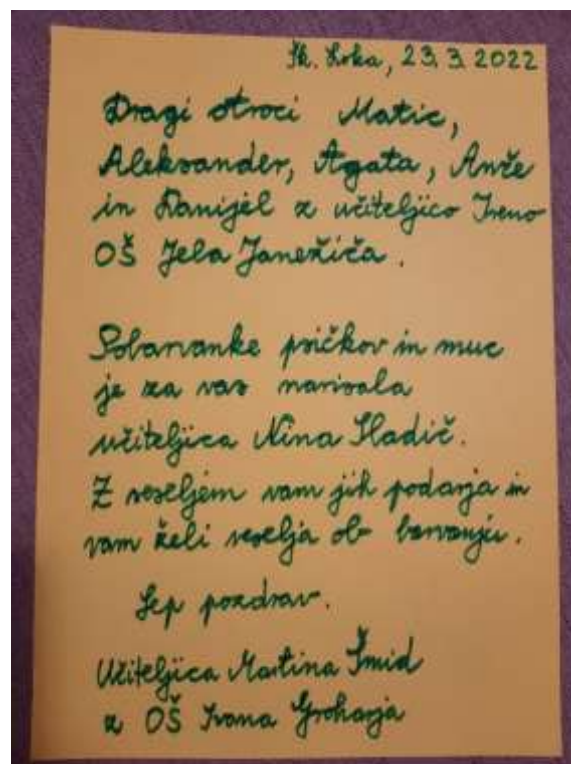 Šk. Loka, 23. 3. 2022
Dragi otroci Matic,
Aleksander, Agata, Anže
in Danijel z učiteljico Ireno
OŠ Jela Janežiča.
Pobarvanke psičkov in muc
je za vas narisala
učiteljica Nina Hladič.
Z veseljem vam jih podarja in
vam želi veselja ob barvanju.
Lep pozdrav.
Učiteljica Martina Šmid
z OŠ Ivana Groharja